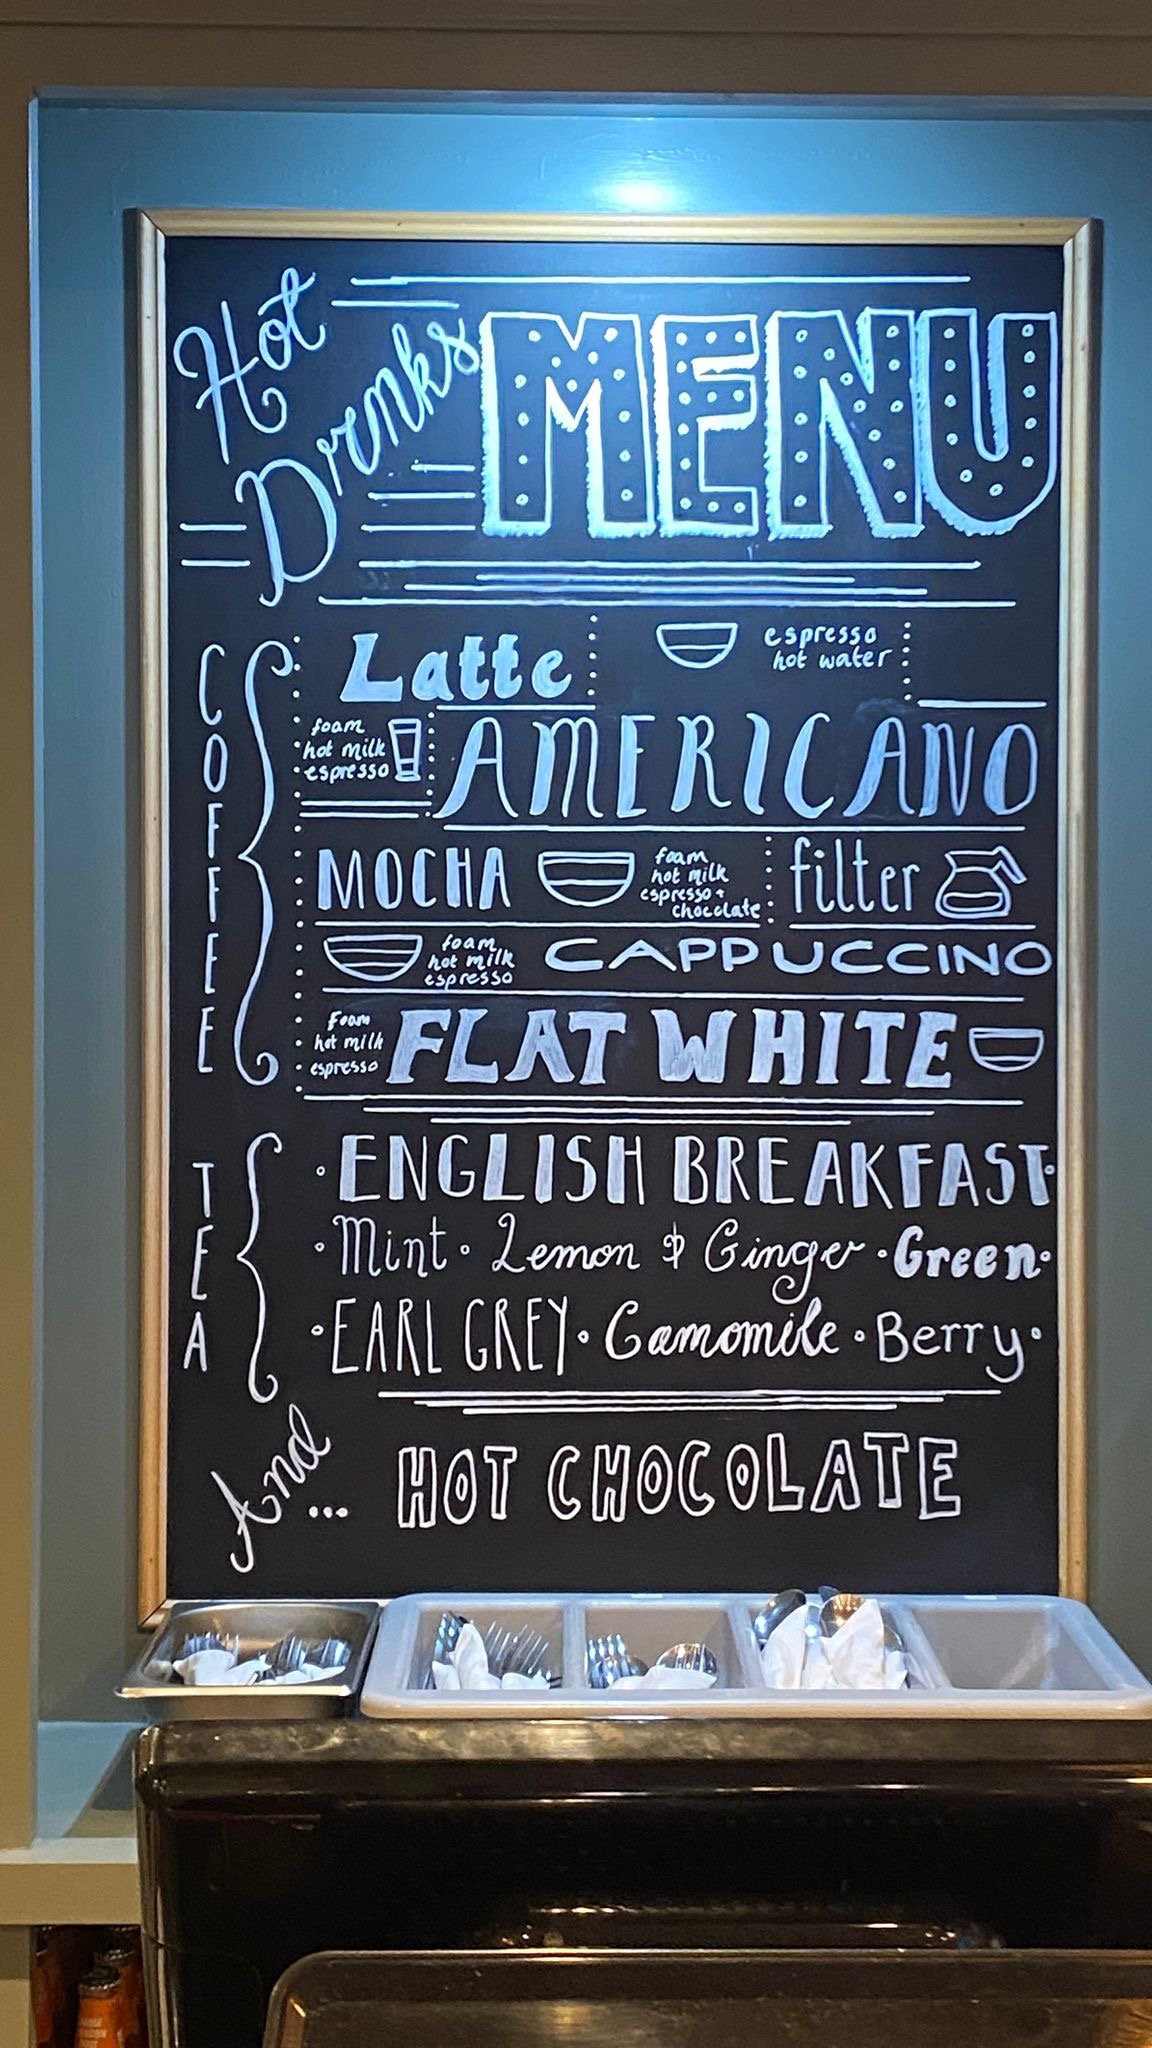 Hot
Drinks
MENU
COFFEE
Latte
espresso
hot water
foam
hot milk
espresso
AMERICANO
MOCHA
foam
hot milk
espresso +
chocolate
filter
foam
hot milk
espresso
CAPPUCCINO
foam
hot milk
espresso
FLAT WHITE
TEA
· ENGLISH BREAKFAST ·
· Mint · Lemon & Ginger · Green ·
· EARL GREY · Camomile · Berry ·
And ...
HOT CHOCOLATE